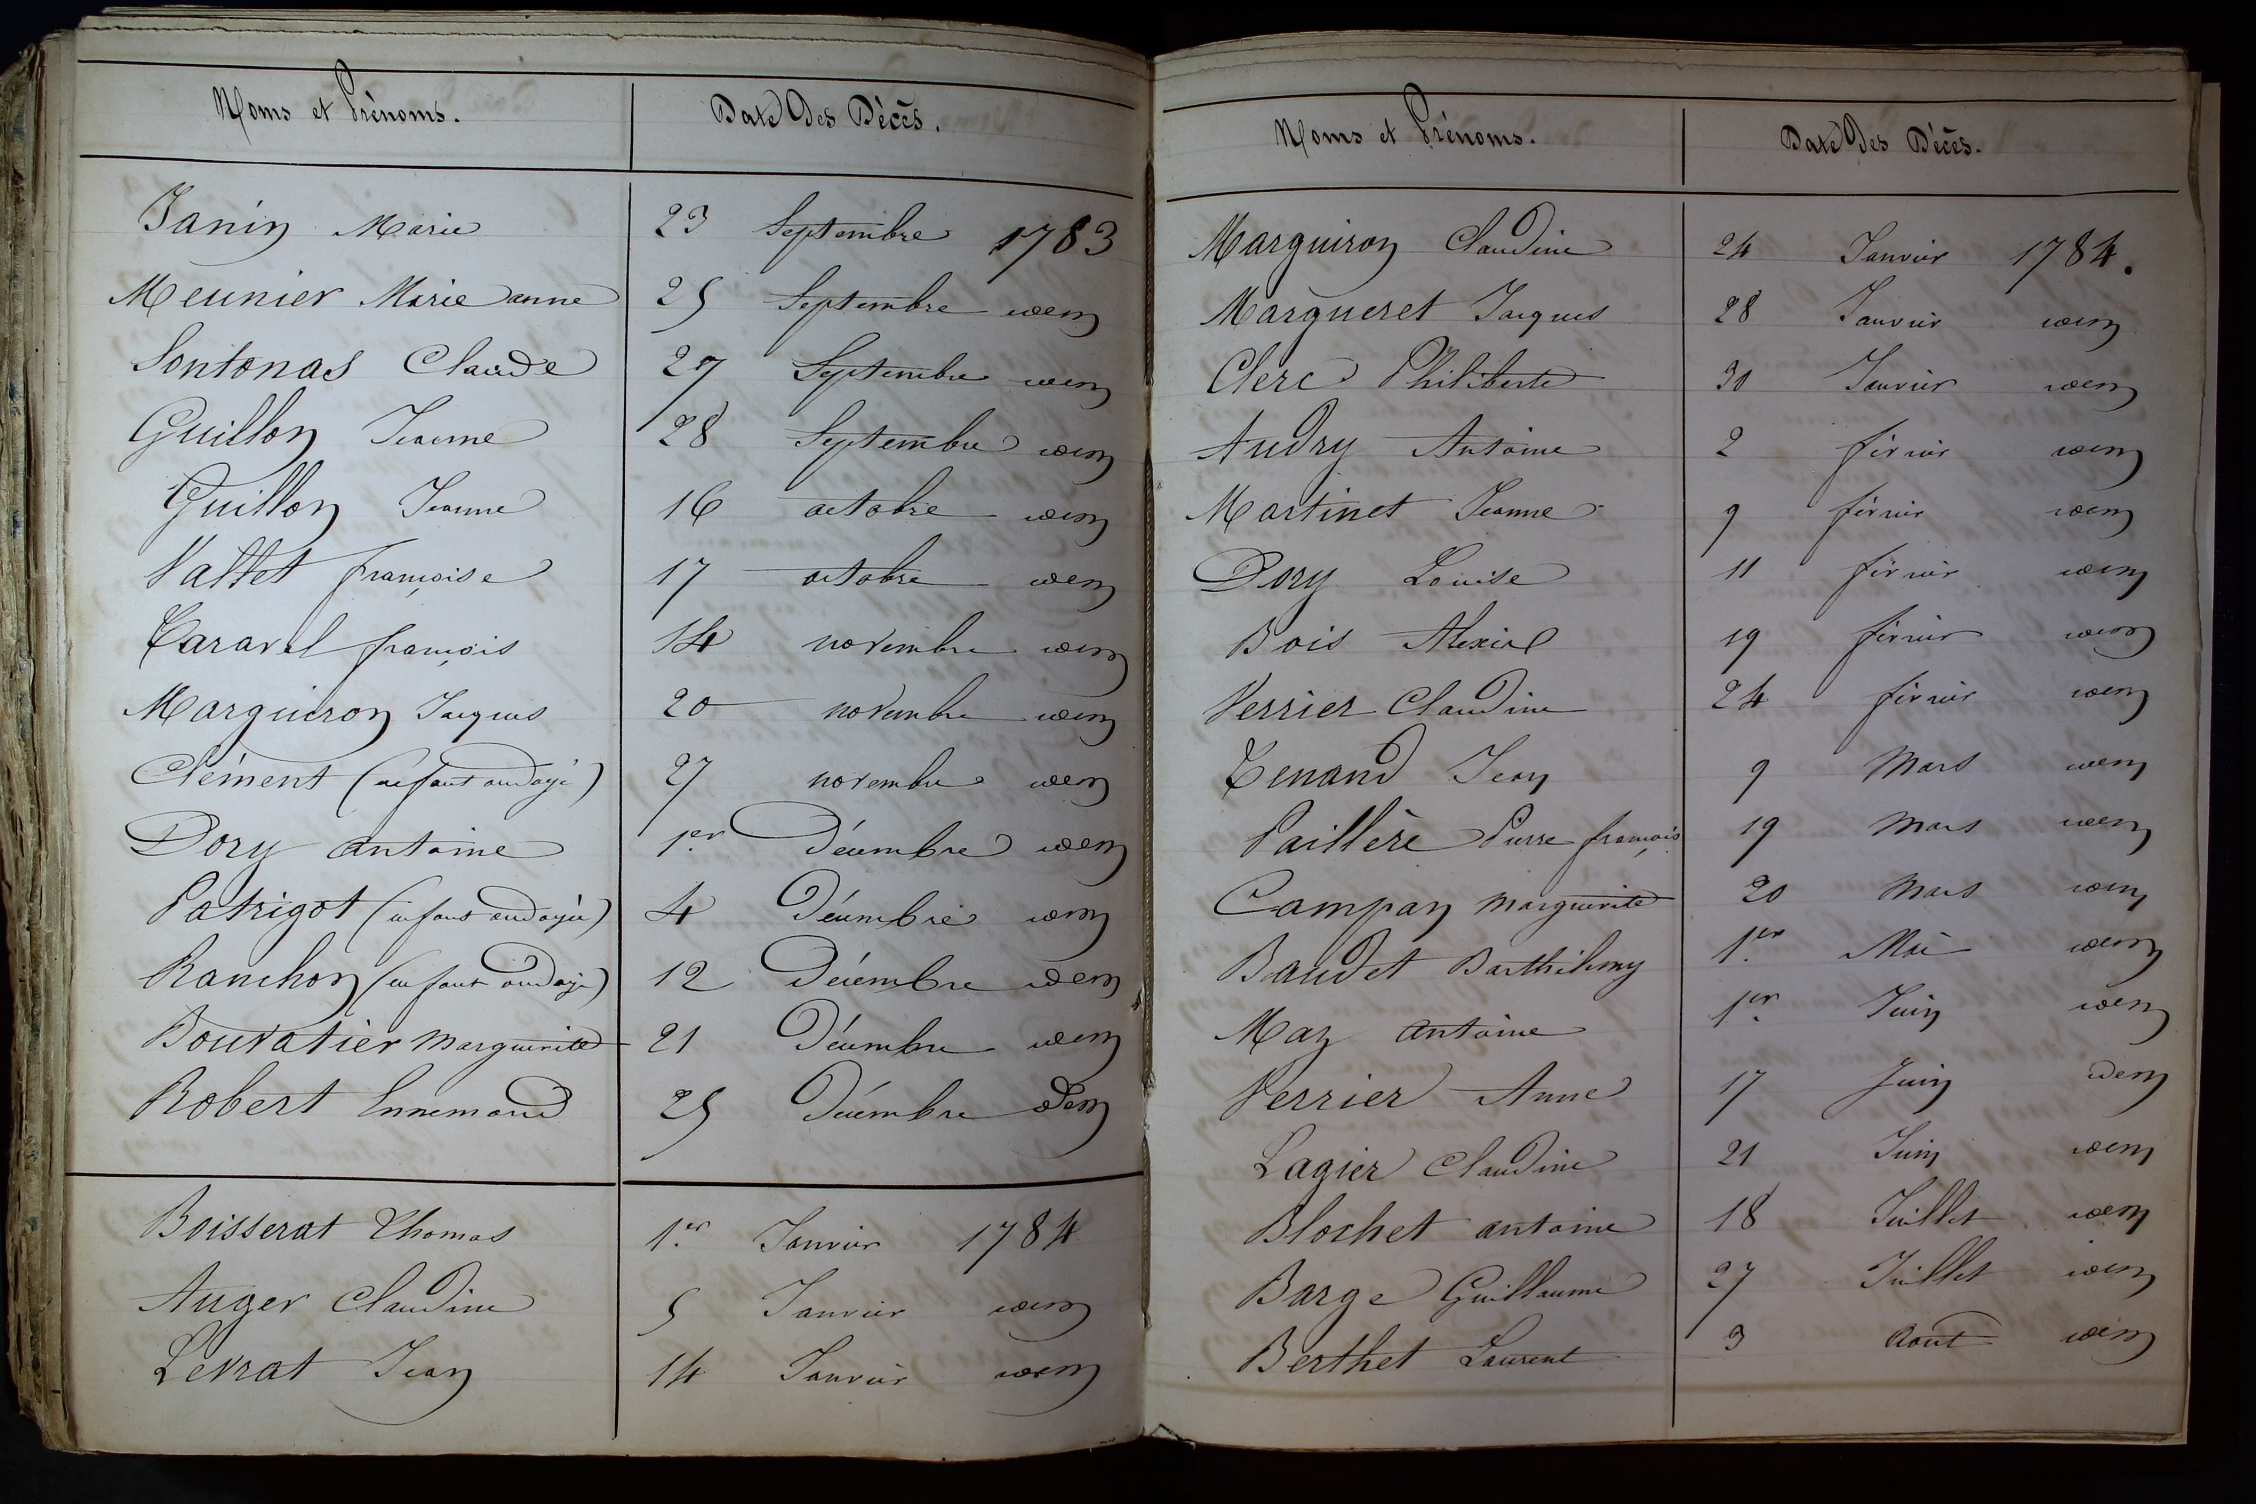 Noms et Prénoms. Date Des Décès.
Janin Marie 23 Septembre 1783
Meunier Marie anne 25 Septembre idem
Sontonas Claude 27 Septembre idem
Guillon Jeanne 28 Septembre idem
Guillon Jeanne 16 octobre idem
Vallet françoise 17 octobre idem
Caravel françois 14 novembre idem
Marguiron Jacques 20 novembre idem
Clément (enfant ondoyé) 27 novembre idem
Dory antoine 1er Décembre idem
Patrigot (enfant ondoyée) 4 Décembre idem
Ranchon (enfant ondoyé) 12 Décembre idem
Bouvatier marguerite 21 Décembre idem
Robert Ennemond 25 Décembre idem
Boisserat Thomas 1er Janvier 1784
Auger Claudine 5 Janvier idem
Levrat Jean 14 Janvier idem
Noms et Prénoms. Date Des Décès.
Marguiron Claudine 24 Janvier 1784.
Margueret Jacques 28 Janvier idem
Clerc Philiberte 30 Janvier idem
Audry Antoine 2 février idem
Martinet Jeanne 9 février idem
Dory Louise 11 février idem
Bois 19 février idem
Verrier Claudine 24 février idem
Tenand Jean 9 Mars idem
Paillère Pierre françois 19 Mars idem
Campan Marguerite 20 Mars idem
Baudet Barthélemy 1er Mai idem
Maz antoine 1er Juin idem
Verrier Anne 17 Juin idem
Lagier Claudine 21 Juin idem
Blochet antoine 18 Juillet idem
Barge Guillaume 27 Juillet idem
Berthet Laurent 3 Aout idem